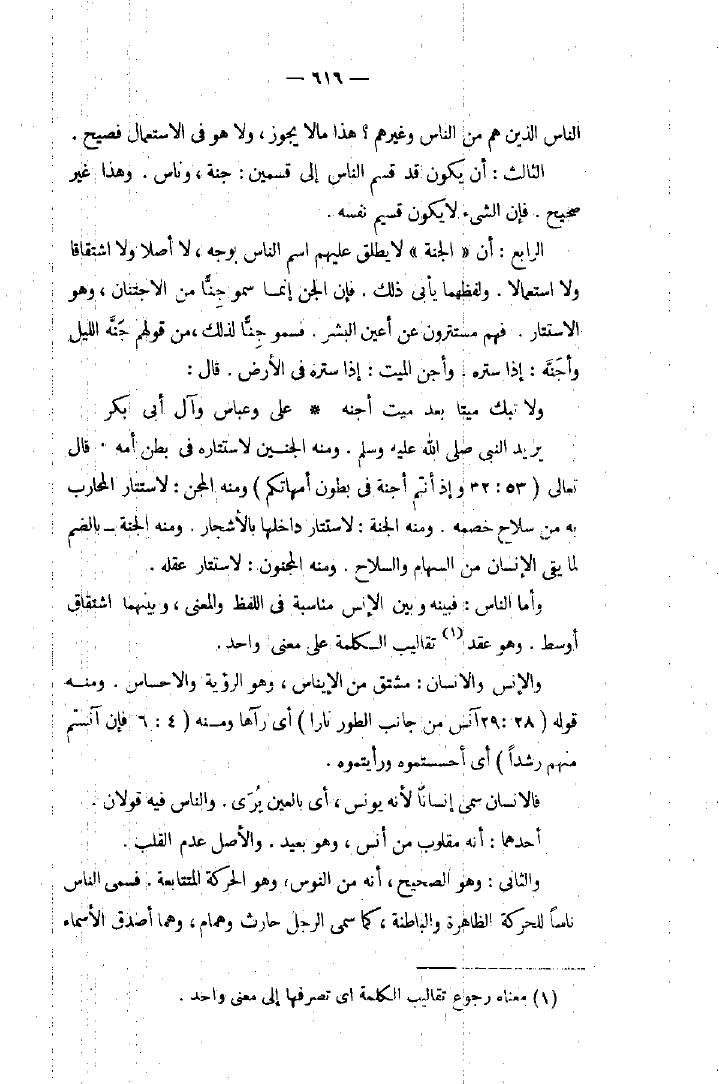 — ٦١٦ —
الناس الذين هم من الناس وغيرهم ؟ هذا مالا يجوز ، ولا هو فى الاستعمال فصيح .
الثالث : أن يكون قد قسم الناس إلى قسمين : جنة ، وناس . وهذا غير
صحيح . فإن الشىء لايكون قسيم نفسه .
الرابع : أن « الجنة » لايطلق عليهم اسم الناس بوجه ، لا أصلا ولا اشتقاقا
ولا استعمالا . ولفظهما يأبى ذلك . فإن الجن إنما سمو جِنًّا من الاجتنان ، وهو
الاستتار . فهم مستترون عن أعين البشر . فسمو جِنًّا لذلك ،من قولهم جَنَّه الليل
وأجَنَّه : إذا ستره . وأجن الميت : إذا ستره فى الأرض . قال :
ولا تبك ميتا بعد ميت أجنه * على وعباس وآل أبى بكر
يريد النبي صلى الله عليه وسلم . ومنه الجنين لاستتاره فى بطن أمه . قال
تعالى ( ٥٣ : ٣٢ وإذ أنتم أجنة فى بطون أمهاتكم ) ومنه المجن : لاستتار المحارب
به من سلاح خصمه . ومنه الجنة : لاستتار داخلها بالأشجار . ومنه الجنة ـ بالضم
لما يقى الإنسان من السهام والسلاح . ومنه المجنون : لاستتار عقله .
وأما الناس : فبينه وبين الإنس مناسبة فى اللفظ والمعنى ، وبينهما اشتقاق
أوسط . وهو عقد (١) تقاليب الكلمة على معنى واحد .
والإنس والانسان : مشتق من الإيناس ، وهو الرؤية والاحساس . ومنه
قوله ( ٢٨ : ٢٩ آنس من جانب الطور نارا ) أى رآها ومنه ( ٤ : ٦ فإن آنستم
منهم رشداً ) أى أحسستموه ورأيتموه .
فالانسان سمى إنساناً لأنه يونس ، أى بالعين يُرَى . والناس فيه قولان .
أحدهما : أنه مقلوب من أنس ، وهو بعيد . والأصل عدم القلب .
والثانى : وهو الصحيح ، أنه من النوس، وهو الحركة المتتابعة . فسمى الناس
ناساً للحركة الظاهرة والباطنة ، كما سمى الرجل حارث وهمام ، وهما أصدق الأسماء
(١) معناه رجوع تقاليب الكلمة اى تصرفها إلى معنى واحد .